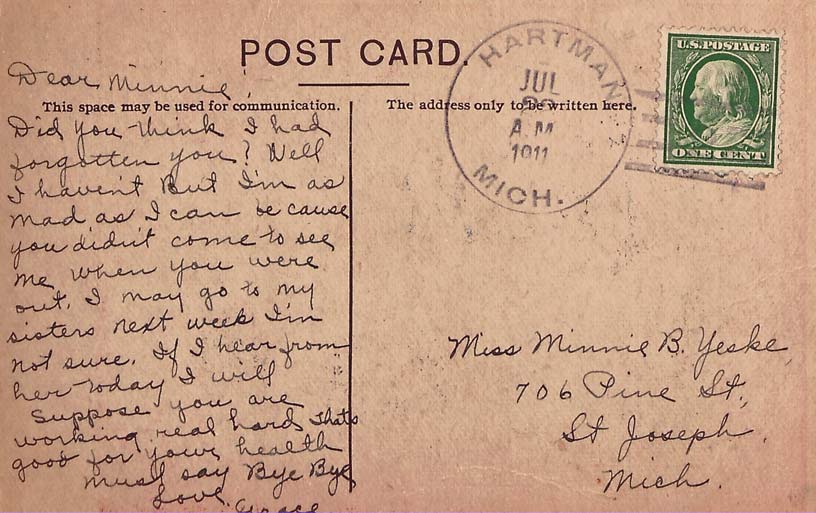 POST CARD.
Dear Minnie,
This space may be used for communication.
Did you think I had
forgotten you? Well
I haven't But I'm as
mad as I can be cause
you didn't come to see
me when you were
out. I may go to my
sisters next week I'm
not sure. If I hear from
her today I will
Suppose you are
working real hard thats
good for your health
Must say Bye Bye
Love. Grace
The address only to be written here.
HARTMAN
JUL
A.M.
1911
MICH.
U.S. POSTAGE
ONE CENT
Miss Minnie B. Yeske,
706 Pine St,
St Joseph,
Mich.